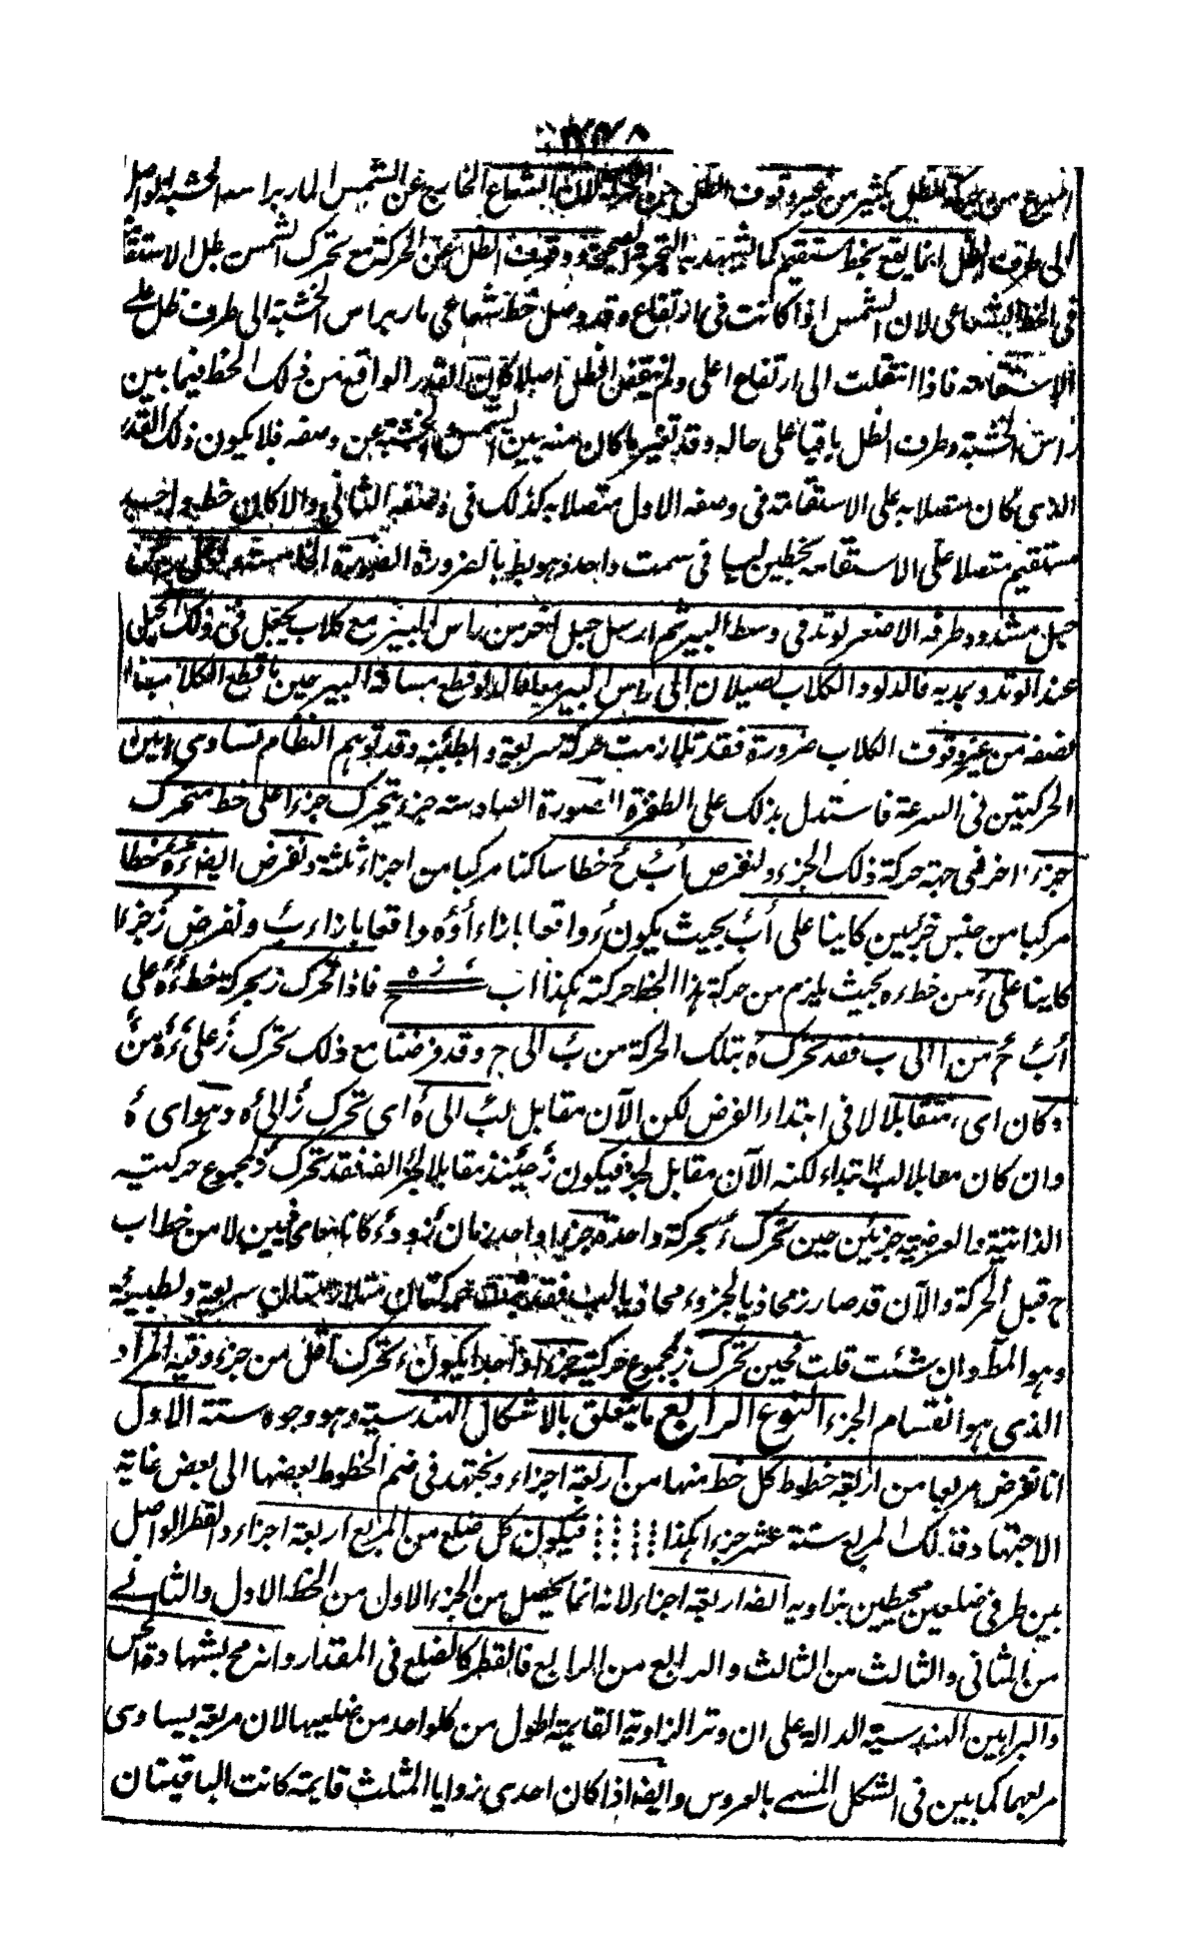 من حركة الظل بكثير من غير وقوف الظل عن الحركة لان الشعاع الخارج عن الشمس المار براس الخشبة الواصل
الى طرف الظل انما يقع بخط مستقيم كما تشهد به التجربة الصحيحة ووقوف الظل عن الحركة مع تحرك الشمس يبطل الاستقامة
فى الخط الشعاعى لان الشمس اذا كانت فى ارتفاع وقد وصل خط شعاعى مار براس الخشبة الى طرف ظل على
الاستقامة فاذا انتقلت الى ارتفاع اعلى ولم ينتقص الظل اصلا كان القدر الواقع من ذلك الخط فيما بين
راس الخشبة وطرف الظل باقيا على حاله وقد تغير ما كان منه بين الشمس والخشبة عن وصفه فلا يكون ذلك القدر
الذى كان متصلا به على الاستقامة فى وصفه الاول متصلا به كذلك فى وصفه الثانى والا كان خط واحد
مستقيم متصلا على الاستقامة بخطين ليسا فى سمت واحد وهو بط بالضرورة الصورة الخامسة دلو على
حبل مشدود طرفه الاخر بوتد فى وسط البير ثم ارسل حبل اخر من راس البير مع كلاب يجعل فى ذلك الحبل
عند الوتد ويمد به فالدلو والكلاب يصلان الى راس البير معا فالدلو قطع مسافة البير حين ما قطع الكلاب
نصفه من غير وقوف الكلاب ضرورة فقد تلازمت حركة سريعة وبطيئة وقد توهم النظام تساوى هاتين
الحركتين فى السرعة فاستدل بذلك على الطفرة الصورة السادسة جزء يتحرك جزءا على خط متحرك
جزءا اخر فى جهة حركة ذلك الجزء ولنفرض اب ج خطا ساكنا مركبا من اجزاء ثلثة ونفرض ايضا ءه خطا
مركبا من جنس جزئين كاينا على اب بحيث يكون ء واقعا بازاء ا وه واقعا بازاء ب ونفرض ز جزءا
كاينا على ء من خط ءه بحيث يلزم من حركة هذا الخط حركته هكذا اب ج ء ز ه فاذا تحرك ز بحركة خط ءه على
اب ج من ا الى ب فقد تحرك ه بتلك الحركة من ب الى ج وقد فرضنا مع ذلك تحرك ز على ءه من ء
وكان اى ء متقابلا لا فى ابتداء الفرض لكن الآن مقابل لب الى ه اى تحرك ز الى ه وهو اى ه
وان كان مقابلا لب ابتداء لكنه الآن مقابل لج فيكون ز حينئذ مقابلا لج ايضا فقد تحرك ز بمجموع حركتيه
الذاتية والعرضية جزئين حين تحرك ء بحركة واحدة جزءا واحدا لان ز و ء كانا معا محاذيين لا من خط اب
ج قبل الحركة والآن قد صار ز محاذيا لج وء محاذيا لب فقد تحققت حركتان متلازمتان سريعة وبطيئة
وهو المط وان شئت قلت فحين تحرك ز بمجموع حركتيه جزءا واحدا يكون ء تحرك اقل من جزء وفيه المراد
الذى هو انقسام الجزء النوع الرابع ما يتعلق بالاشكال الهندسية وهو وجوه ستة الاول
انا نفرض مربعا من اربعة خطوط كل خط منها من اربعة اجزاء ونجتهد فى ضم الخطوط بعضها الى بعض غاية
الاجتهاد فذلك المربع ستة عشر جزءا هكذا فيكون كل ضلع من المربع اربعة اجزاء والقطر الواصل
بين طرفى ضلعين محيطين بزاوية ايضا اربعة اجزاء لانه انما يحصل من الجزء الاول من الخط الاول والثانى
من الثانى والثالث من الثالث والرابع من الرابع فالقطر كالضلع فى المقدار وانه مح بشهادة الحس
والبراهين الهندسية الدالة على ان وتر الزاوية القايمة اطول من كلواحد من ضلعيها لان مربعه يساوى
مربعهما كما بين فى الشكل المسمى بالعروس وايضا اذا كان احدى زوايا المثلث قايمة كانت الباقيتان